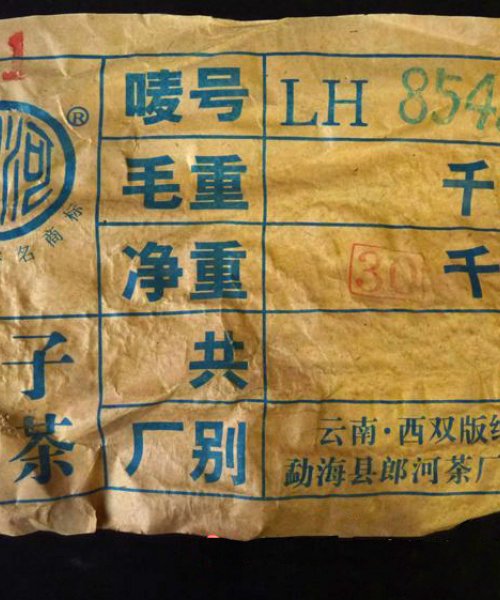 1
河
®
名商标
唛号 LH 854
毛重 千
净重 30 千
子 共
茶 厂别 云南·西双版纳
勐海县郎河茶厂